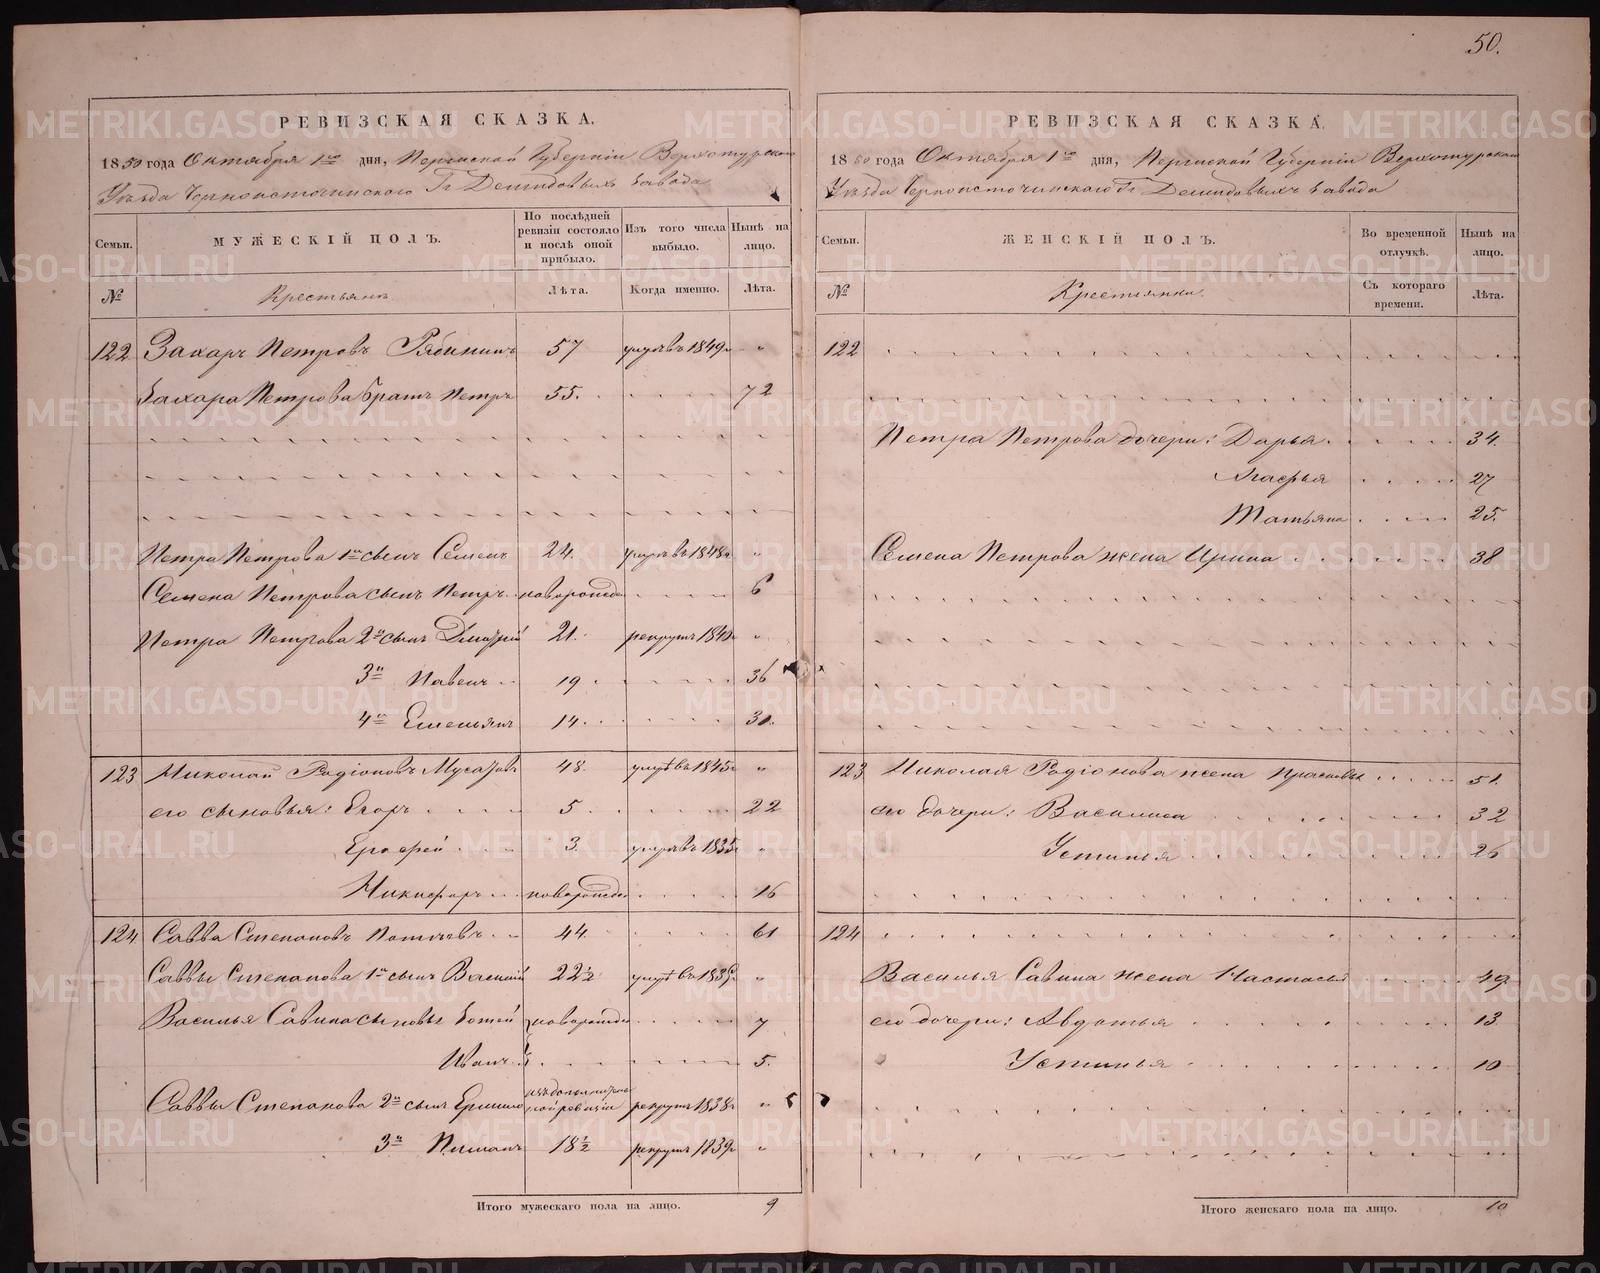 50.
РЕВИЗСКАЯ СКАЗКА.
1850 года Октября 1го дня, Пермской Губернiи Верхотурскаго
Уѣзда Черноисточинскаго Гг Демидовыхъ завода
Семьи.
МУЖЕСКIЙ ПОЛЪ.
По послѣдней ревизiи состояло и послѣ оной прибыло.
Изъ того числа выбыло.
Нынѣ на лицо.
№
Крестьянъ
Лѣта.
Когда именно.
Лѣта.
122 Захаръ Петровъ Рябининъ 57 умръ въ 1849г "
Захара Петрова братъ Петръ 55. 72
Петра Петрова 1й сынъ Семенъ 24. умръ въ 1848г "
Семена Петрова сынъ Петръ новорожд 6
Петра Петрова 2й сынъ Дмитрiй 21. рекрутъ 1840г "
3й Павелъ 19 36
4й Емельянъ 14. 31.
123 Николай Родiоновъ 48. умръ въ 1845г "
его сыновья: Егоръ 5 22
Ерофей 3. умръ въ 1835г "
Никифоръ новорожд 16
124 Савва Степановъ 44 61
Саввы Степанова 1й сынъ Василiй 22½ умръ въ "
Василья Савина сыновья новорожд 7
Иванъ 5.
Саввы Степанова 2й сынъ изъ дополнительной ревизiи рекрутъ 1838г "
3й 18½ рекрутъ 1839г "
Итого мужескаго пола на лицо. 9
РЕВИЗСКАЯ СКАЗКА.
1850 года Октября 1го дня, Пермской Губернiи Верхотурскаго
Уѣзда Черноисточинскаго Гг Демидовыхъ завода
Семьи.
ЖЕНСКIЙ ПОЛЪ.
Во временной отлучкѣ.
Нынѣ на лицо.
№
Крестьянка
Съ котораго времени.
Лѣта.
122
Петра Петрова дочери: Дарья 34.
Агафья 27
Татьяна 25.
Семена Петрова жена Ирина 38
123 Николая Родiонова жена Прасковья 51.
его дочери: Василиса 32
Устинья 26
124
Василья Савина жена Настасья 49
его дочери: Авдотья 13
Устинья 10
Итого женскаго пола на лицо. 10
METRIKI.GASO-URAL.RU